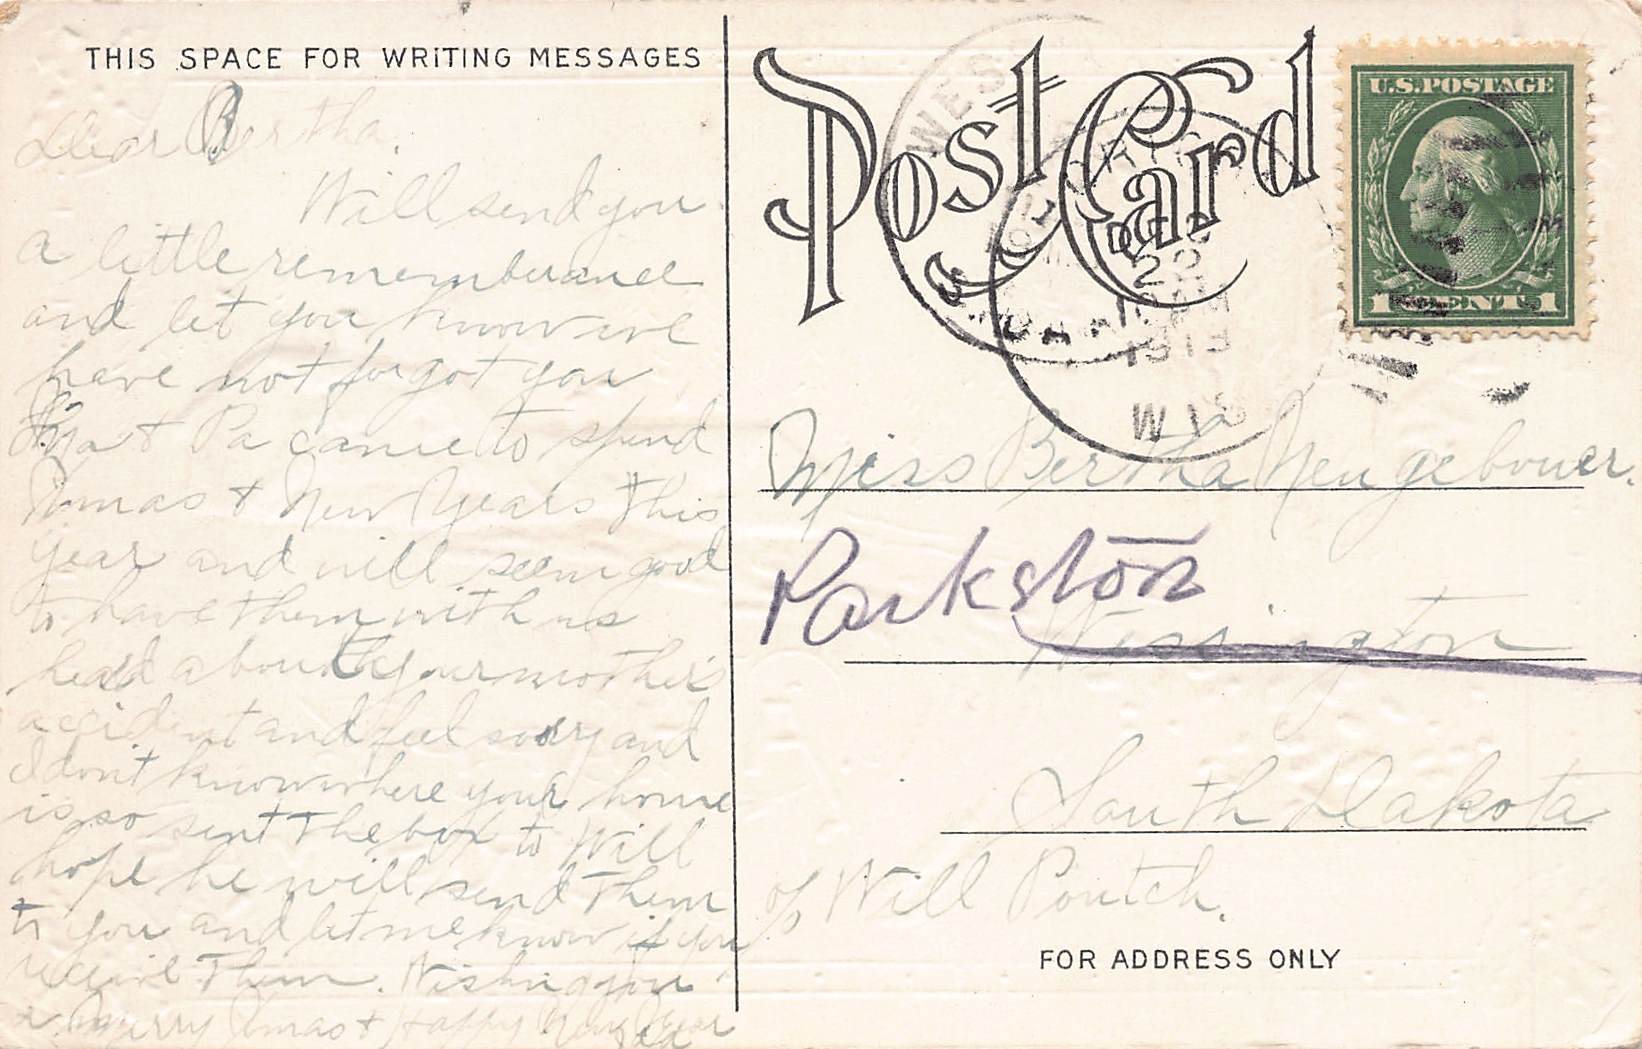 THIS SPACE FOR WRITING MESSAGES
Dear Bertha.
Will send you
a little rememberance
and let you know we
have not forgot you
Ma + Pa came to spend
Xmas + New Years this
year and will seem good
to have them with us
heard about your mother's
accident and feel sorry and
I don't know where your home
is so sent the box to Will
hope he will send them
to you and let me know if you
receive them. Wishing you
a Merry Xmas + Happy New Year
Post Card
U.S. POSTAGE
1 CENT 1
WES
DEC
23
AM
1913
WIS
Miss Bertha Neugebouer.
Parkston
Wessington
South Dakota
c/o Will Poutch.
FOR ADDRESS ONLY